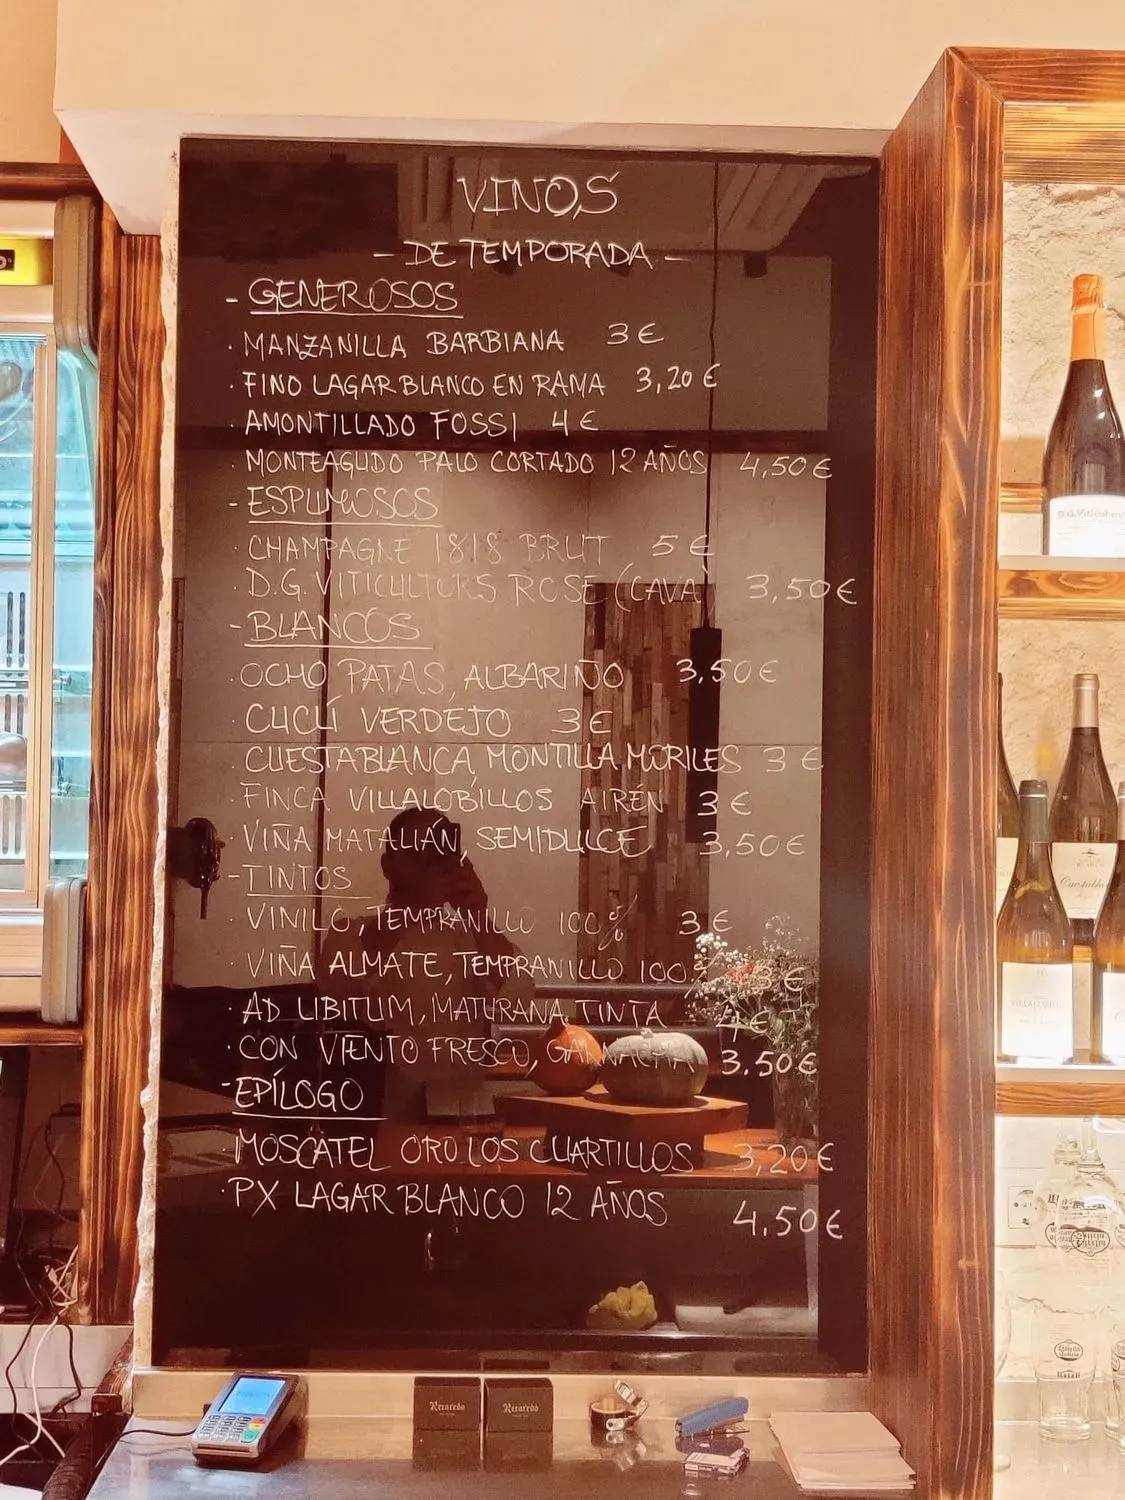 VINOS
- DE TEMPORADA -
- GENEROSOS
· MANZANILLA BARBIANA 3 €
· FINO LAGAR BLANCO EN RAMA 3,20 €
· AMONTILLADO FOSSI 4 €
· MONTEAGUDO PALO CORTADO 12 AÑOS 4,50 €
- ESPUMOSOS
· CHAMPAGNE 1818 BRUT 5 €
· D.G. VITICULTORS ROSÉ (CAVA) 3,50 €
- BLANCOS
· OCHO PATAS, ALBARIÑO 3,50 €
· CUCLÍ VERDEJO 3 €
· CUESTABLANCA, MONTILLA MORILES 3 €
· FINCA VILLALOBILLOS AIRÉN 3 €
· VIÑA MATALIÁN, SEMIDULCE 3,50 €
- TINTOS
· VINILO, TEMPRANILLO 100% 3 €
· VIÑA ALMATE, TEMPRANILLO 100% 3 €
· AD LIBITUM, MATURANA TINTA 4 €
· CON VIENTO FRESCO, GARNACHA 3.50 €
- EPÍLOGO
· MOSCATEL ORO LOS CUARTILLOS 3,20 €
· PX LAGAR BLANCO 12 AÑOS 4.50 €
D.G. Viticultors
Recaredo
Recaredo
Estrella Galicia